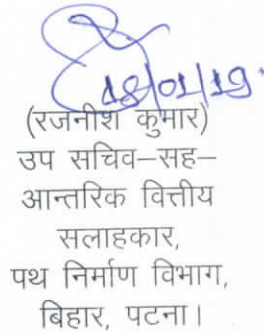 18/01/19
(रजनीश कुमार)
उप सचिव–सह–
आन्तरिक वित्तीय
सलाहकार,
पथ निर्माण विभाग,
बिहार, पटना।